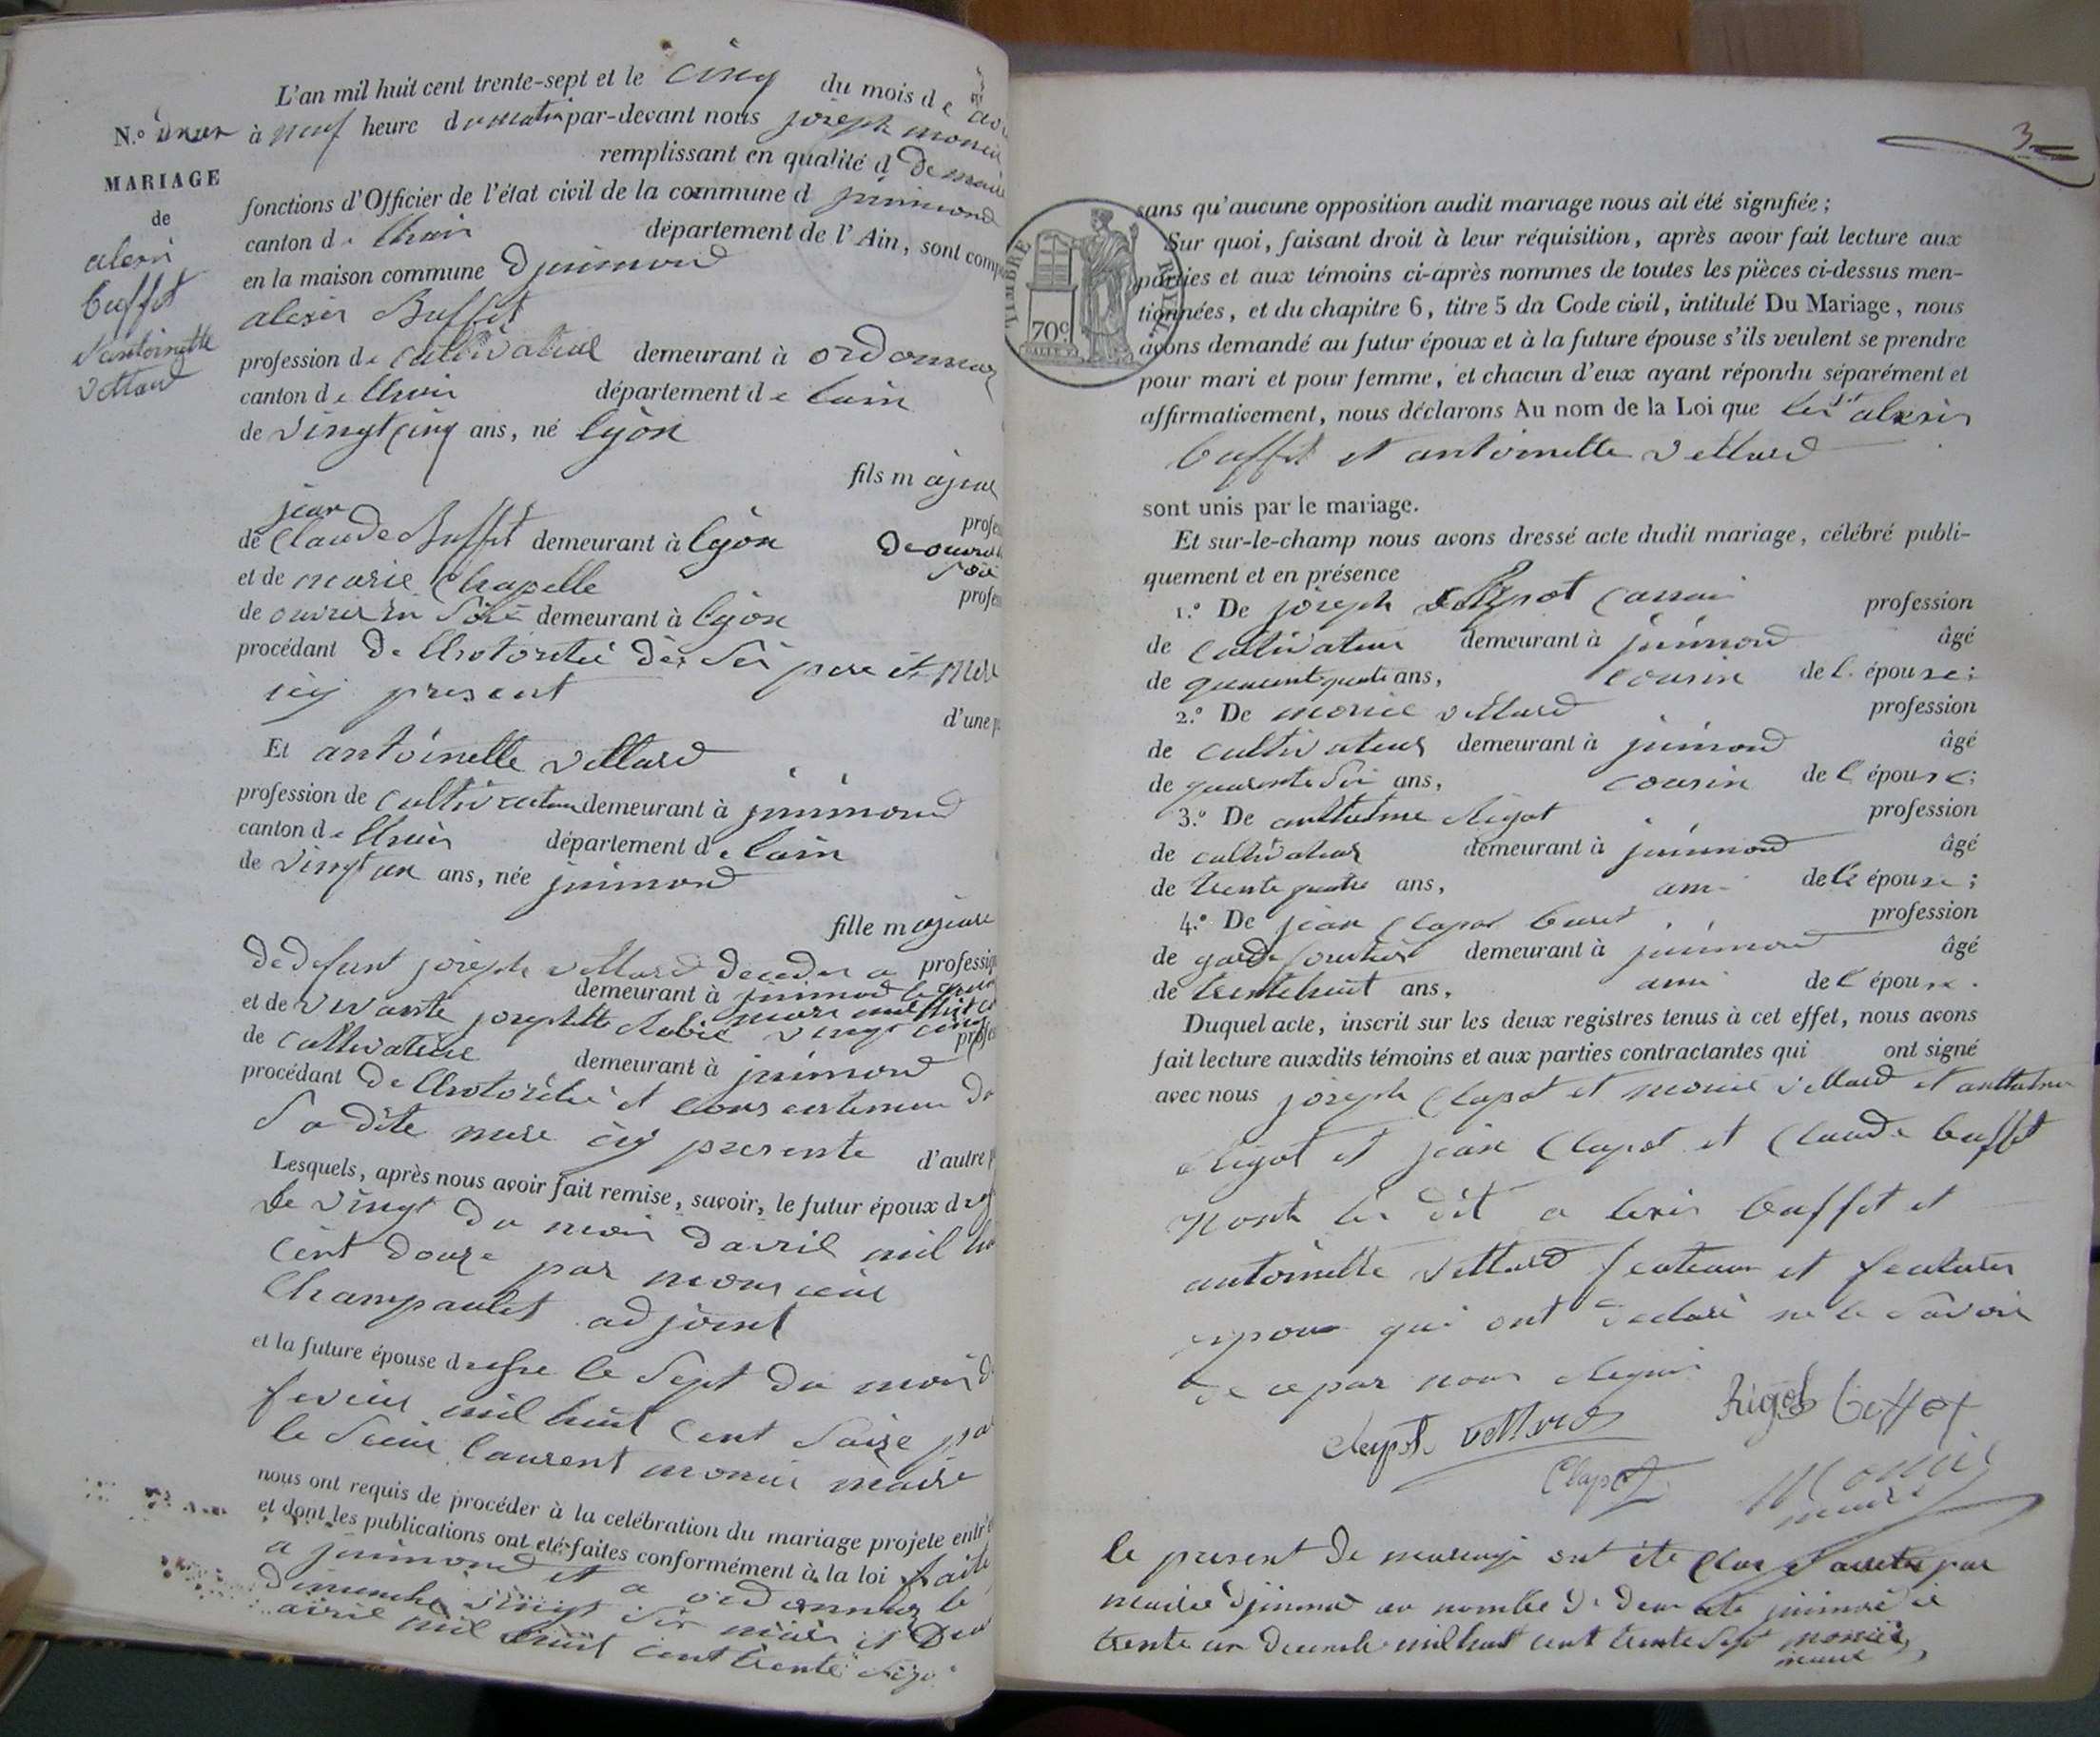 L'an mil huit cent trente-sept et le cinq du mois de
N.º deux à neuf heure du matin par-devant nous joseph monin
remplissant en qualité d de maire
MARIAGE
de
alexis
buffet
antoinette
vettard
fonctions d'Officier de l'état civil de la commune d jnimond
canton de lhuis département de l'Ain, sont comp
en la maison commune d jnimond
alexis Buffet
profession de cultivateur demeurant à ordonnaz
canton de lhuis département de lain
de vingt cinq ans, né lyon
fils majeur
jean
de Claude Buffet demeurant à lyon
profe
de ouvrie
soie
et de marie Chapelle
profe
de ouvrier en soie demeurant à lyon
procédant de lhotoritié des ses pere et mere
icy present
d'une p
Et antoinette vettard
profession de cultivateur demeurant à jnimond
canton de lhuis département de lain
de vingt un ans, née jnimond
fille majeure
de defunt joseph vettard deceder a profession
demeurant à jnimond le
mars mil huit c
et de vivante josephtte vingt cinq
profes
de cultivateur demeurant à jnimond
procédant de lhotoritié et consentemen de
sa dite mere icy presente d'autre p
Lesquels, après nous avoir fait remise, savoir, le futur époux d
le vingt du mois davril mil hui
cent douze par monsieur
Champaulet adjoint
et la future épouse dresse le sept du mois d
fevrier mil huit cent saize pa
le sieur laurent monin maire
nous ont requis de procéder à la celébration du mariage projete entr'e
et dont les publications ont été faites conformément à la loi faite
a jnimond et a ordonnaz le
dimenche vingt six mars et deux
avril mil huit cent trente sept
3
TIMBRE ROYAL
70c
sans qu'aucune opposition audit mariage nous ait été signifiée;
Sur quoi, faisant droit à leur réquisition, après avoir fait lecture aux
parties et aux témoins ci-après nommes de toutes les pièces ci-dessus men-
tionnées, et du chapitre 6, titre 5 du Code civil, intitulé Du Mariage, nous
avons demandé au futur époux et à la future épouse s'ils veulent se prendre
pour mari et pour femme, et chacun d'eux ayant répondu séparément et
affirmativement, nous déclarons Au nom de la Loi que les dit alexis
buffet et antoinette vettard
sont unis par le mariage.
Et sur-le-champ nous avons dressé acte dudit mariage, célébré publi-
quement et en présence
1.º De joseph profession
de cultivateur demeurant à jnimond âgé
de quarente quatre ans, cousin de l. épouse;
2.º De vettard profession
de cultivateur demeurant à jnimond âgé
de quarente six ans, cousin de l épouse;
3.º De anthelme Rigot profession
de cultivateur demeurant à jnimond âgé
de trente quatre ans, ami de l'épouse;
4.º De jean Clapot profession
de garde forestier demeurant à jnimond âgé
de trente huit ans, ami de l épouse.
Duquel acte, inscrit sur les deux registres tenus à cet effet, nous avons
fait lecture auxdits témoins et aux parties contractantes qui ont signé
avec nous joseph Clapot et vettard et anthelme
Rigot et jean Clapot et Claude buffet
non les dit alexis buffet et
antoinette vettard futeur et futures
epoux qui ont declaré ne le savoir
de ce par nous Requis
Clapot vettard Rigot buffet
Clapot Monin
maire
le present de mariage ont été Clos et arreté par
maire djnimond au nombre de deux acte jnimond le
trente un decembre mil huit cent trente sept monin
maire